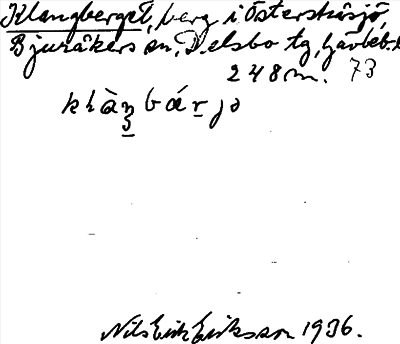 Klangberget, berg i Österstråsjö,
Bjuråkers sn, Delsbo tg, Gävleb. l
248 m. 73
klàŋbárjə
Nils Erik Eriksson 1936.